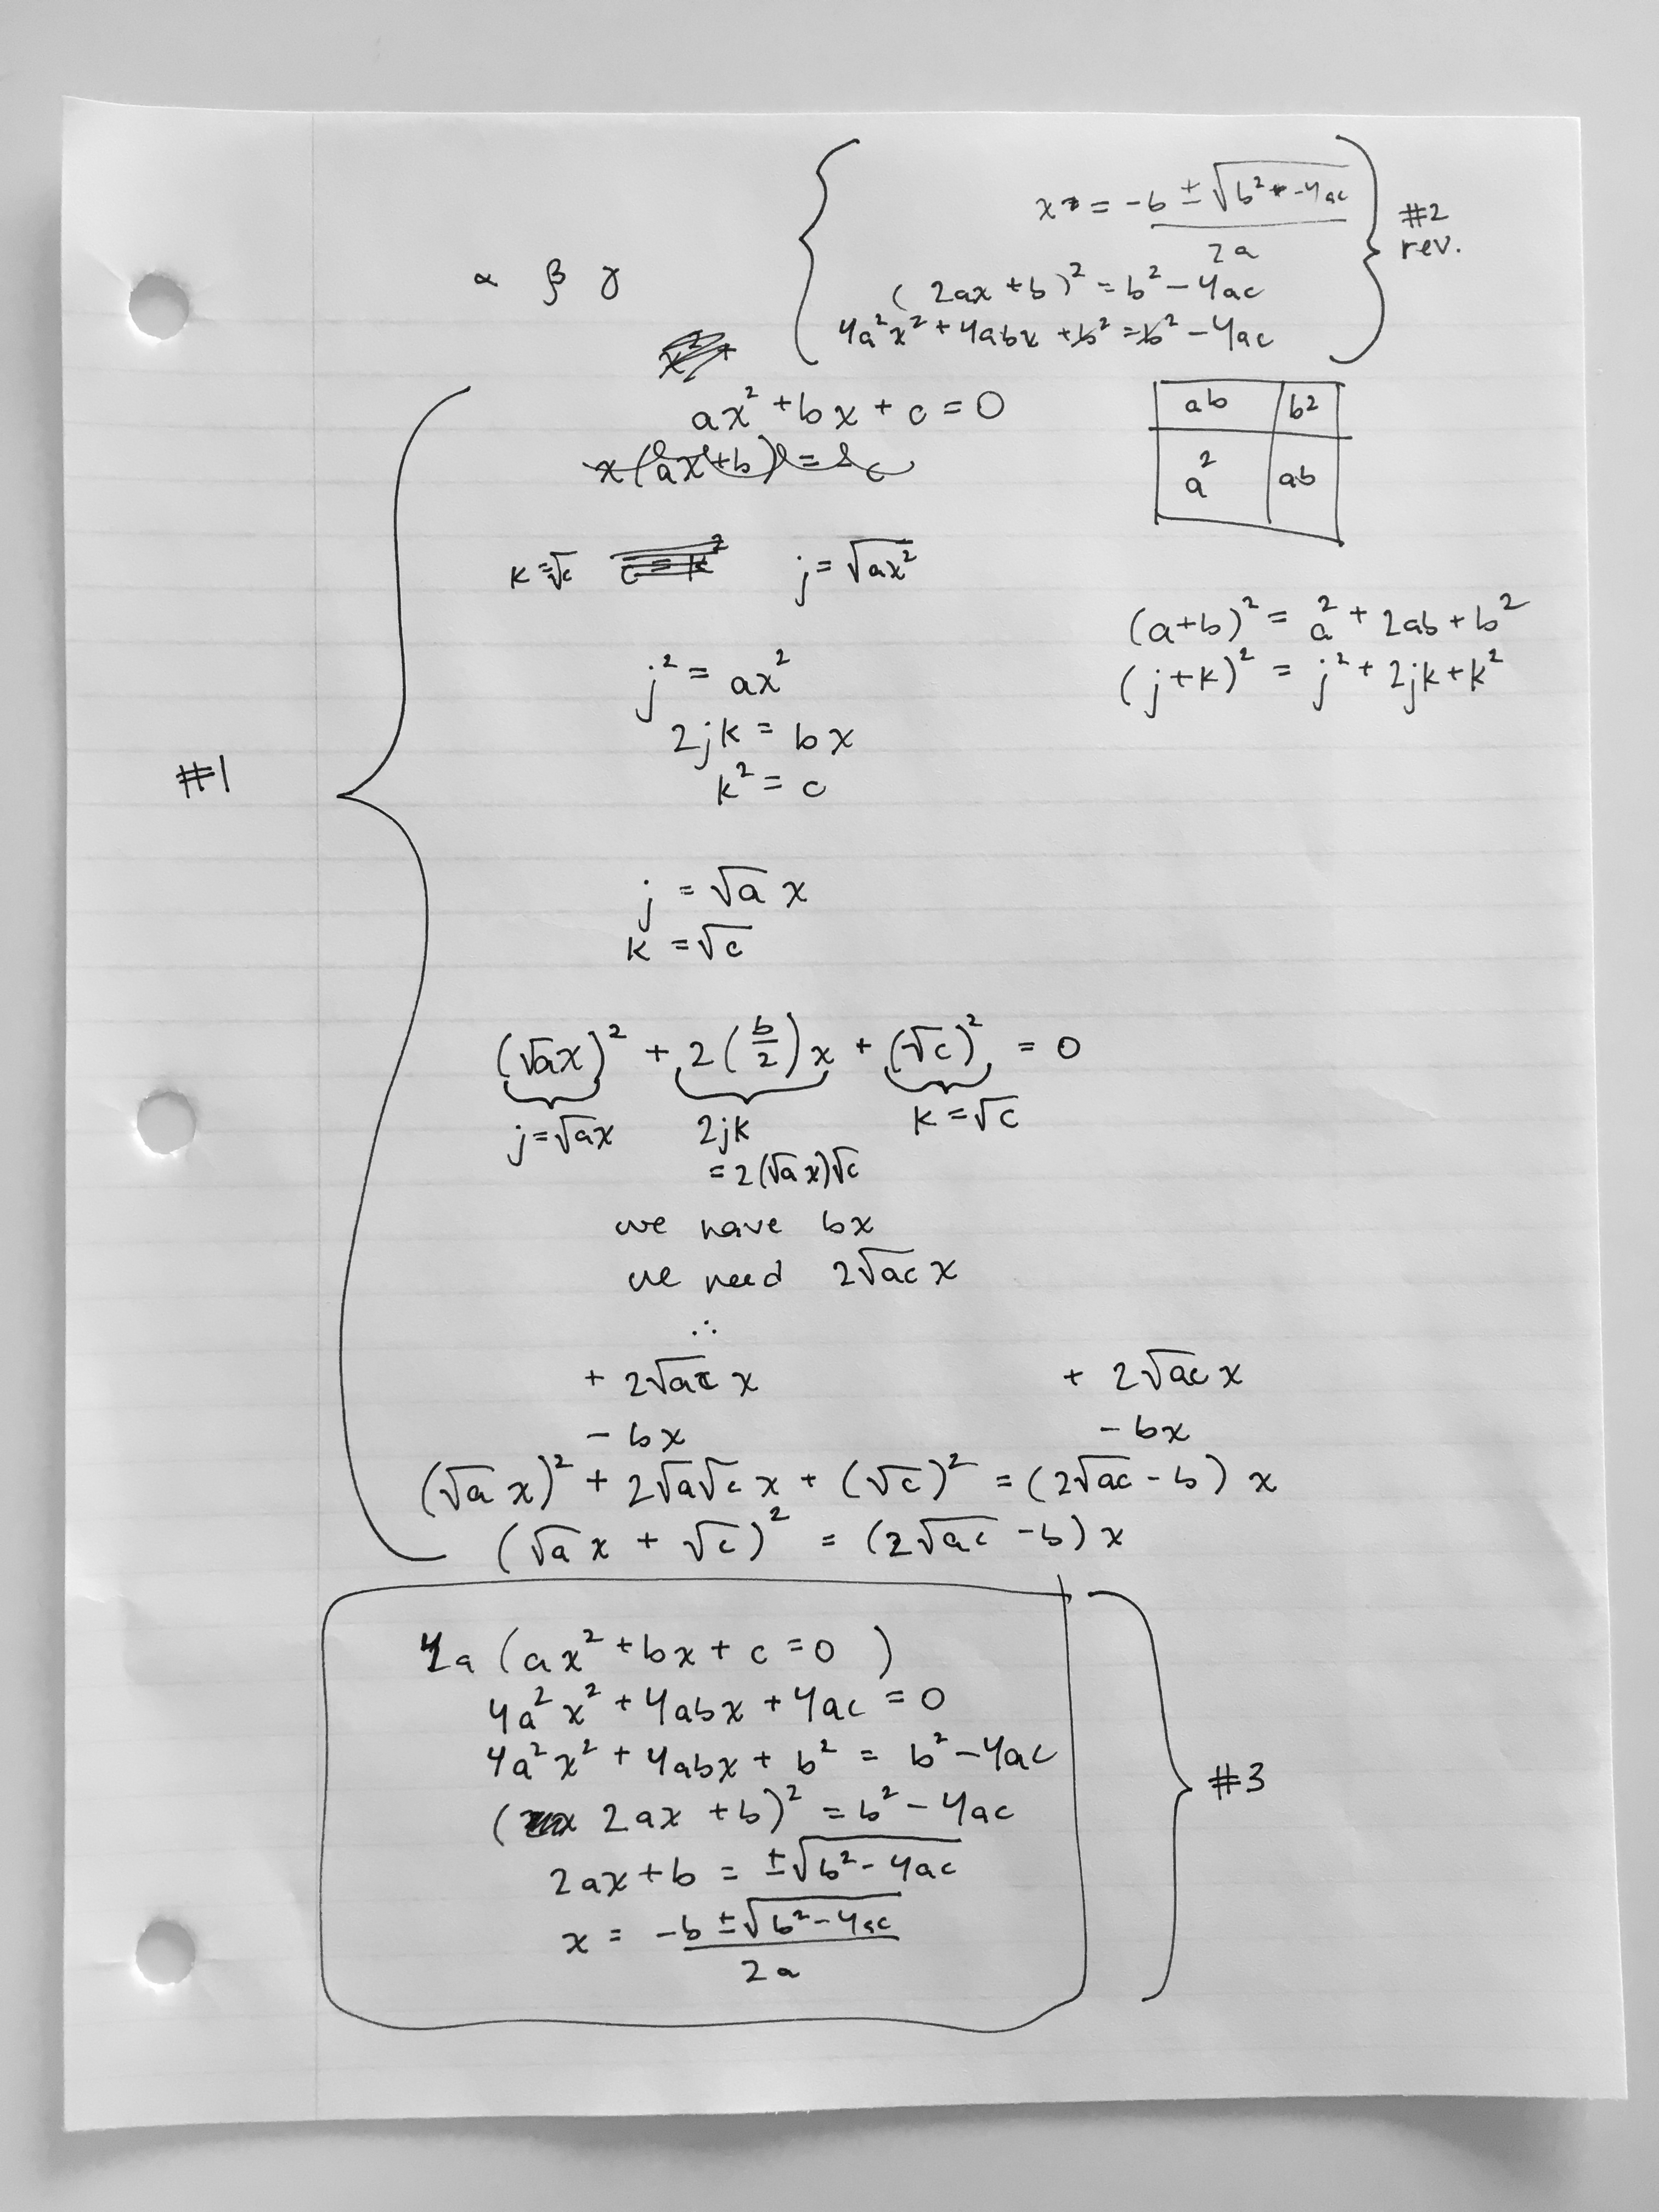 x = -b ± √(b² - 4ac)
2a
#2
rev.
α β γ
(2ax + b)² = b² - 4ac
4a²x² + 4abx + b² = b² - 4ac
x² +
ax² + bx + c = 0
x(ax + b) = -c
ab b²
a² ab
k = √c c = k² j = √(ax²)
(a+b)² = a² + 2ab + b²
(j+k)² = j² + 2jk + k²
j² = ax²
2jk = bx
k² = c
#1
j = √a x
k = √c
(√a x)² + 2(b/2)x + (√c)² = 0
j = √a x 2jk k = √c
= 2(√a x)√c
we have bx
we need 2√ac x
∴
+ 2√ac x + 2√ac x
- bx - bx
(√a x)² + 2√a√c x + (√c)² = (2√ac - b) x
(√a x + √c)² = (2√ac - b) x
4a (ax² + bx + c = 0)
4a²x² + 4abx + 4ac = 0
4a²x² + 4abx + b² = b² - 4ac
#3
(2ax + b)² = b² - 4ac
2ax + b = ±√(b² - 4ac)
x = -b ± √(b² - 4ac)
2a